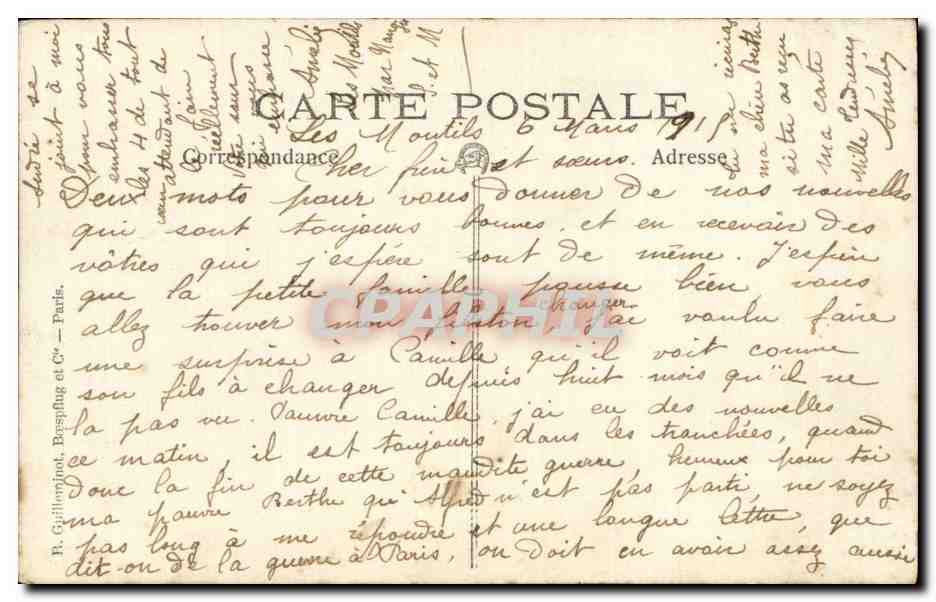 CARTE POSTALE
Correspondance
Adresse
Les Moutils 6 Mars 1915
Cher frère et sœurs.
Deux mots pour vous donner de nos nouvelles
qui sont toujours bonnes, et en recevoir des
vôtres qui j'espére sont de même. J'espère
que la petite famille pousse bien, vous
allez trouver mon fiston, changer
j'ai voulu faire
une surprise à Camille qu'il voit comme
son fils à changer depuis huit mois qu'il ne
la pas vu. Pauvre Camille j'ai eu des nouvelles
ce matin, il est toujours dans les tranchées, quand
donc la fin de cette maudite guerre, heureux pour toi
ma pauvre Berthe qu'Alfred n'est pas parti, ne soyez
pas long à me répondre et une longue lettre, que
dit-on de la guerre à Paris, on doit en avoir assez aussi
André se
joint à moi
pour vous
embrasser tous
les 4 de tout
cœur
attendant de
vous
Amélie
Les Moutils
par
S. et M
ma chère Berthe
si tu as reçu
ma carte
Mille
Amélie
P. Guilleminot, Bœspflug et Cie — Paris.
CPARHIL